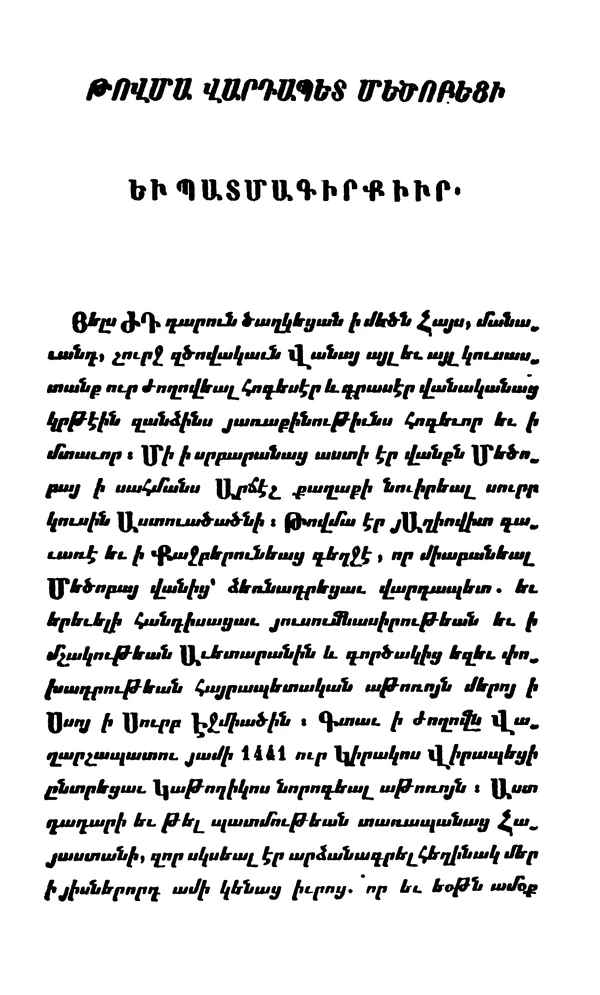 ԹՈՎՄԱ ՎԱՐԴԱՊԵՏ ՄԵԾՈԲԵՑԻ
ԵՒ ՊԱՏՄԱԳԻՐՔ ԻՒՐ․
Ցելս ԺԴ դարուն ծաղկեցան ի մեծն Հայս, մանա֊
ւանդ, շուրջ զծովակաւն Վանայ այլ եւ այլ կուսաս֊
տանք ուր ժողովեալ հոգեսէր և գրասէր վանականաց
կրթէին զանձինս յառաքինութիւնս հոգեւոր եւ ի
մտաւոր ։ Մի ի սրբարանաց աստի էր վանքն Մեծո֊
բայ ի սահմանս Արճէշ քաղաքի նուիրեալ սուրբ
կուսին Աստուածածնի ։ Թովմա էր յԱղիովիտ գա֊
ւառէ եւ ի Քաջբերունեաց գեղջէ , որ միաբանեալ
Մեծոբայ վանից՝ ձեռնադրեցաւ վարդապետ . եւ
երեւելի հանդիսացաւ յուսումնասիրութեան եւ ի
մշակութեան Աւետարանին և գործակից եզեւ փո֊
խադրութեան հայրապետական աթոռոյն մերոյ ի
Սսոյ ի Սուրբ Էջմիածին ։ Գտաւ ի ժողովըն Վա֊
ղարշապատու յամի 1441 ուր Կիրակոս Վիրապեցի
ընտրեցաւ Կաթողիկոս նորոգեալ աթոռոյն ։ Աստ
դադարի եւ թել պատմութեան տառապանաց Հա֊
յաստանի, զոր սկսեալ էր արձանագրել հեղինակ մեր
ի յիսներորդ ամի կենաց իւրոյ. որ եւ եօթն ամօք